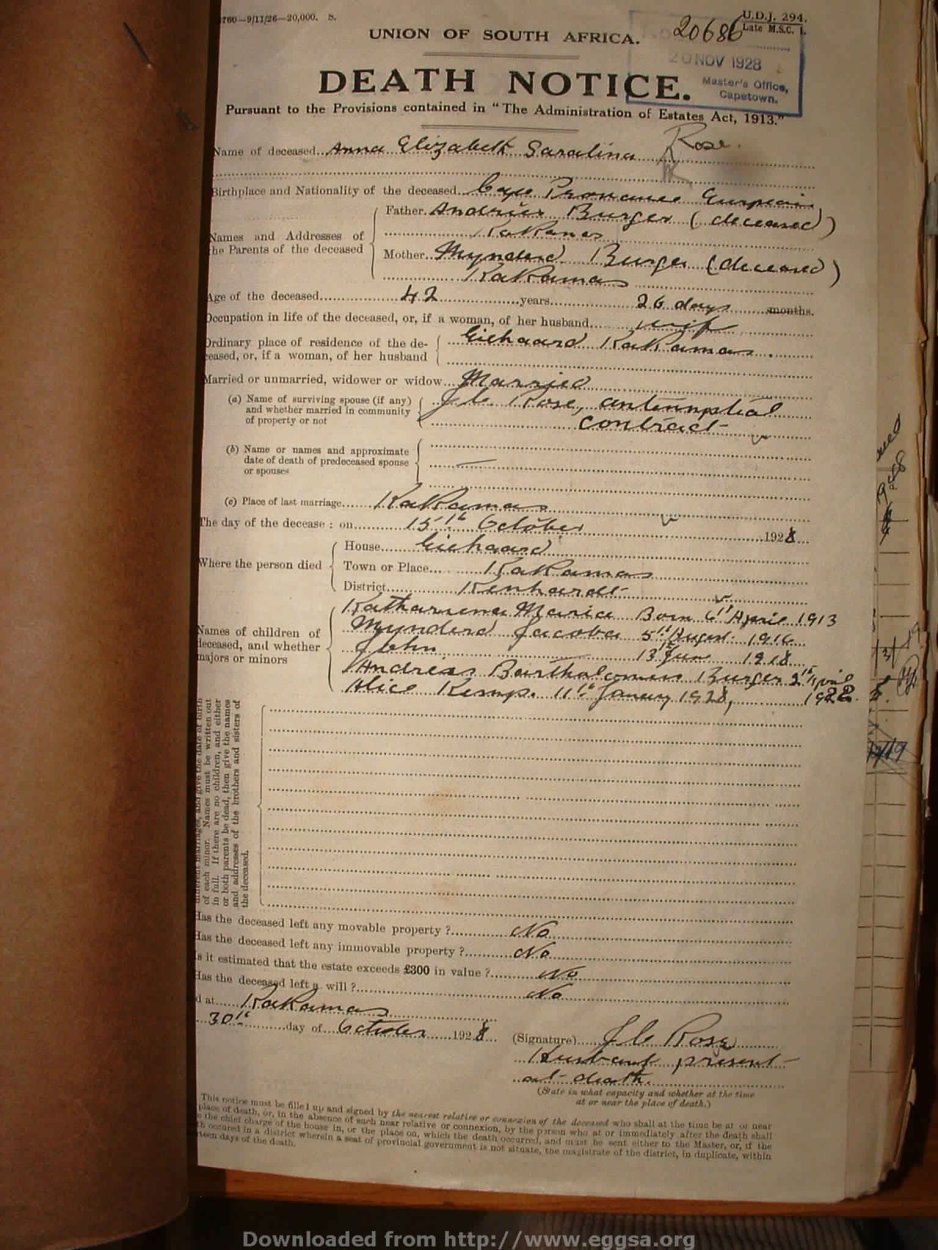 760—9/11/26—20,000. S.
U.D.J. 294.
Late M.S.C. 1.
20686
UNION OF SOUTH AFRICA.
20 NOV 1928
Master's Office,
Capetown.
DEATH NOTICE.
Pursuant to the Provisions contained in "The Administration of Estates Act, 1913."
Name of deceased Anna Elizabeth Saralina Rose.
Birthplace and Nationality of the deceased Cape Province
Father Andries Burger (deceased)
Kakamas
Names and Addresses of
the Parents of the deceased
Mother Mynderd Burger (deceased)
Kakamas
Age of the deceased 42 years 26 days months.
Occupation in life of the deceased, or, if a woman, of her husband wife
Ordinary place of residence of the de-
ceased, or, if a woman, of her husband
Kakamas.
Married or unmarried, widower or widow Married
(a) Name of surviving spouse (if any)
and whether married in community
of property or not
Rose, antenuptial
contract
(b) Name or names and approximate
date of death of predeceased spouse
or spouses
(c) Place of last marriage Kakamas
The day of the decease : on 15th October 1928
Where the person died
House
Town or Place Kakamas
District Kenhardt
Names of children of
deceased, and whether
majors or minors
Katharina Maria Born 6th April 1913
Mynderd Jacoba 5th August 1916
John 13 June 1918
Andreas Bartholomeus Burger 1922
Alice Kemp. 11th January 1928,
different marriages, and give the date of birth
of each minor. Names must be written out
in full. If there are no children, and either
or both parents be dead, then give the names
and addresses of the brothers and sisters of
the deceased.
Has the deceased left any movable property ? No
Has the deceased left any immovable property ? No
Is it estimated that the estate exceeds £300 in value ? No
Has the deceased left a will ? No
d at Kakamas
30th day of October 1928
(Signature) Rose
Husband present
at death.
(State in what capacity and whether at the time
at or near the place of death.)
This notice must be filled up and signed by the nearest relative or connexion of the deceased who shall at the time be at or near
place of death, or, in the absence of such near relative or connexion, by the person who at or immediately after the death shall
the chief charge of the house in, or the place on, which the death occurred, and must be sent either to the Master, or, if the
th occured in a district wherein a seat of provincial government is not situate, the magistrate of the district, in duplicate, within
teen days of the death.
Downloaded from http://www.eggsa.org